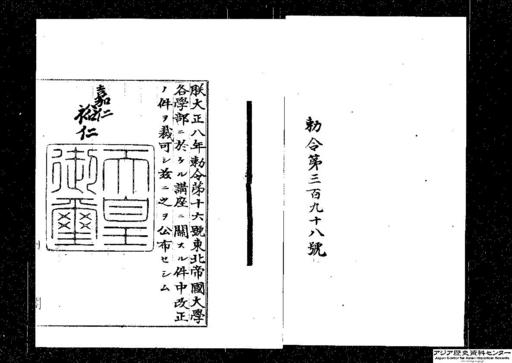 勅令第三百九十八號
朕大正八年勅令第十六號東北帝國大學
各學部ニ於ケル講座ニ關スル件中改正
ノ件ヲ裁可シ茲ニ之ヲ公布セシム
嘉仁
裕仁
天皇
御璽
アジア歴史資料センター
Japan Center for Asian Historical Records